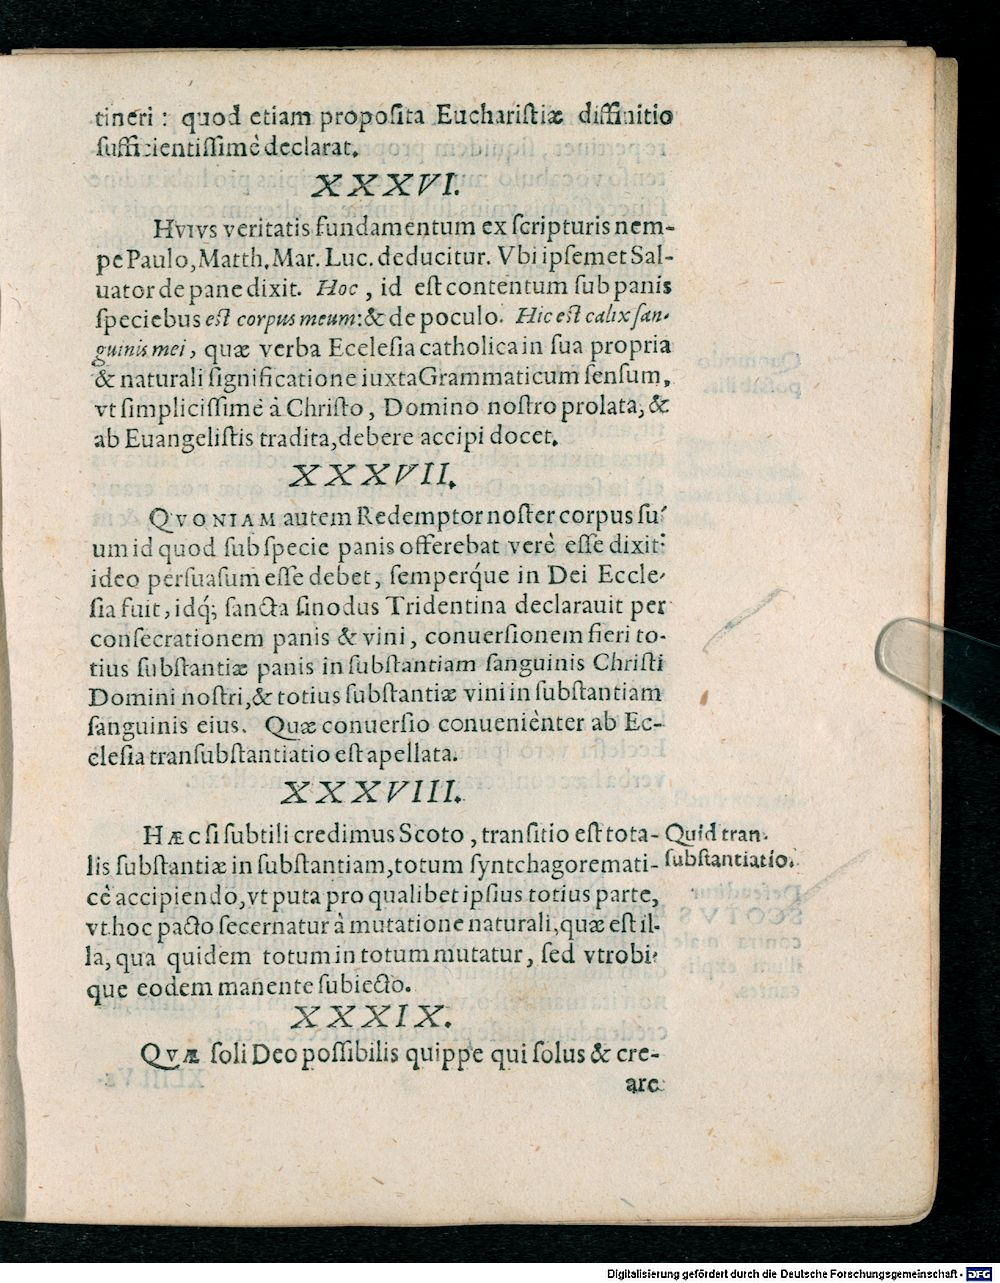 tineri : quod etiam proposita Eucharistiæ diffinitio
sufficientissimè declarat.
XXXVI.
HVIVS veritatis fundamentum ex scripturis nem-
pe Paulo, Matth. Mar. Luc. deducitur. Vbi ipsemet Sal-
uator de pane dixit. Hoc, id est contentum sub panis
speciebus est corpus meum: & de poculo. Hic est calix san-
guinis mei, quæ verba Ecelesia catholica in sua propria
& naturali significatione iuxta Grammaticum sensum,
vt simplicissimè à Christo, Domino nostro prolata, &
ab Euangelistis tradita, debere accipi docet.
XXXVII.
QVONIAM autem Redemptor noster corpus su-
um id quod sub specie panis offerebat verè esse dixit:
ideo persuasum esse debet, semperq́ue in Dei Eccle-
sia fuit, idq́; sancta sinodus Tridentina declarauit per
consecrationem panis & vini, conuersionem fieri to-
tius substantiæ panis in substantiam sanguinis Christi
Domini nostri, & totius substantiæ vini in substantiam
sanguinis eius. Quæ conuersio conuenièter ab Ec-
elesia transubstantiatio est apellata.
XXXVIII.
HÆC si subtili credimus Scoto, transitio est tota-
lis substantiæ in substantiam, totum syntchagoremati-
cè accipiendo, vt puta pro qualibet ipsius totius parte,
vt hoc pacto secernatur à mutatione naturali, quæ est il-
la, qua quidem totum in totum mutatur, sed vtrobi-
que eodem manente subiecto.
Quid tran-
substantiatio.
XXXIX.
QVÆ soli Deo possibilis quippe qui solus & cre-
are
Digitalisierung gefördert durch die Deutsche Forschungsgemeinschaft - DFG